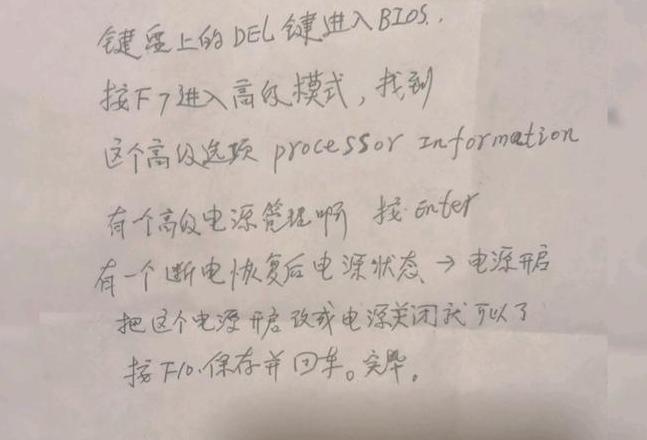 键盘上的DEL键进入BIOS.
按F7进入高级模式，找到
这个高级选项 processor Information
有个高级电源管理啊 按enter
有一个断电恢复后电源状态→电源开启
把这个电源开启改成电源关闭就可以了
按F10.保存并回车。完毕。